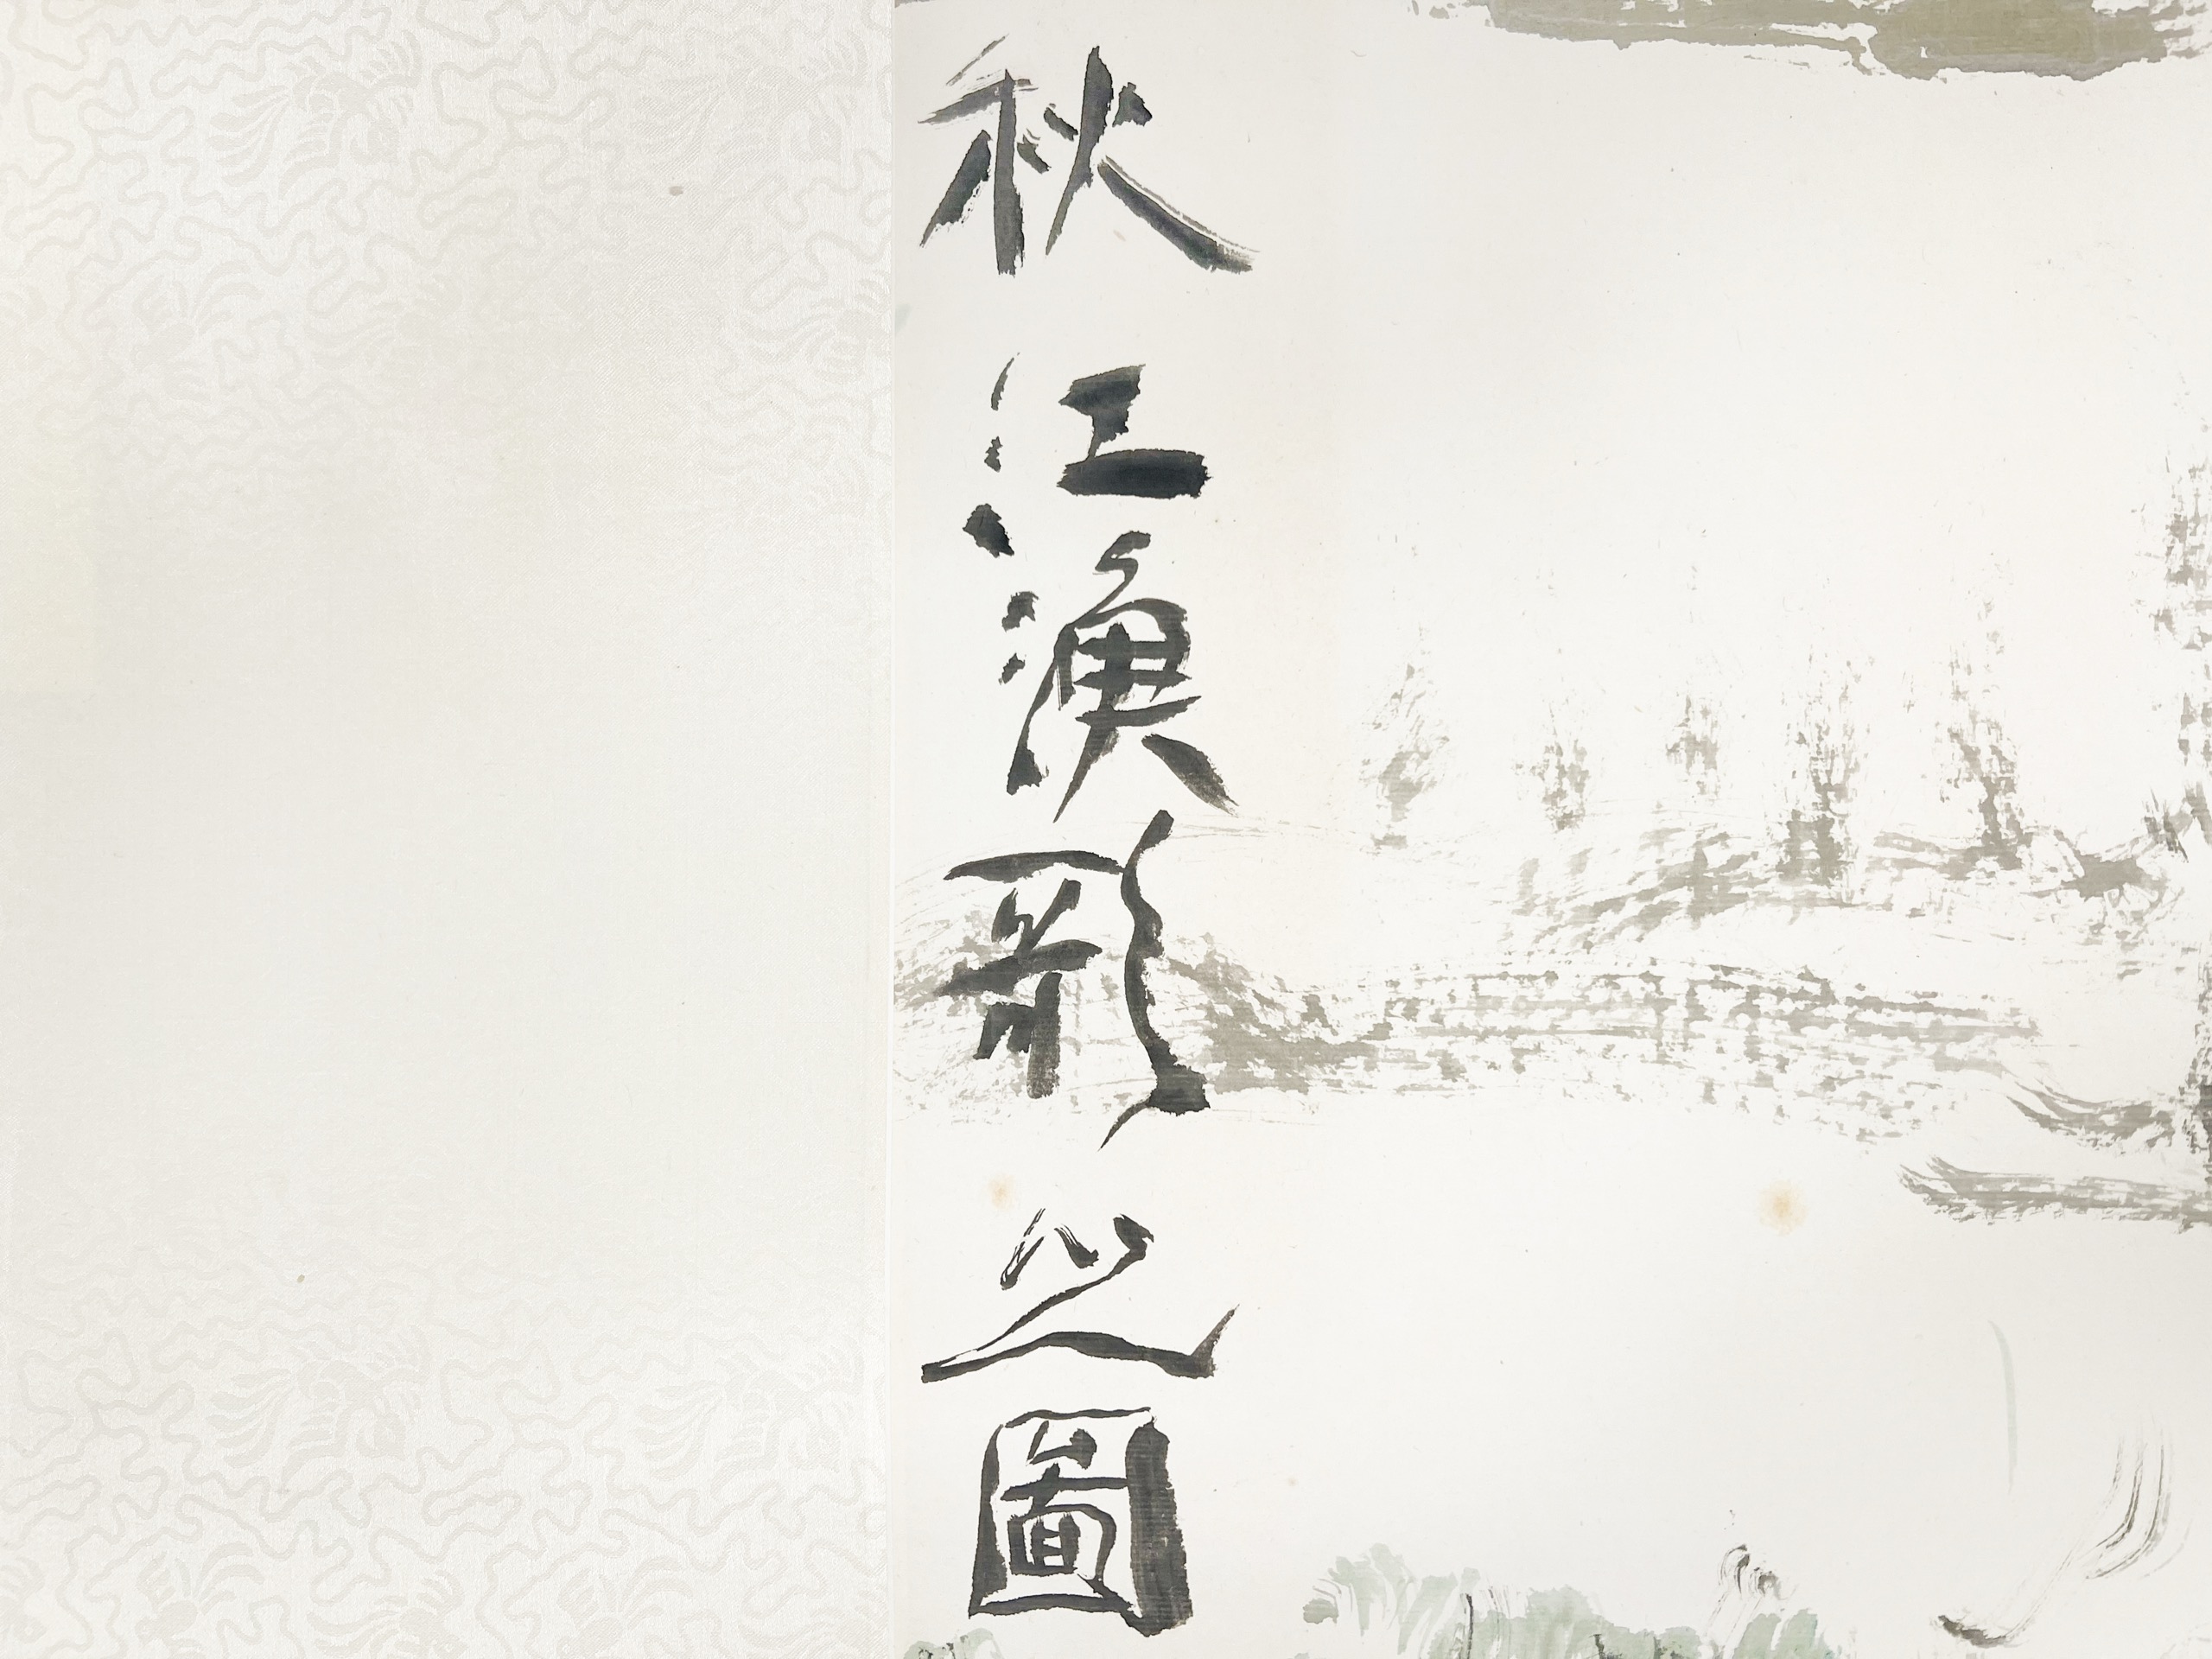 秋江漁之圖